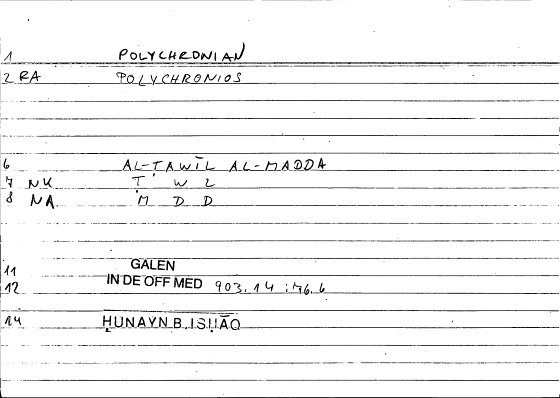 1 POLYCHRONIAN
2 RA POLYCHRONIOS
6 AL-ṬAWĪL AL-MADDA
7 NK Ṭ W L
8 NA M D D
11 GALEN
12 IN DE OFF MED 903.14 :76.6
14 ḤUNAYN B. ISḤĀQ